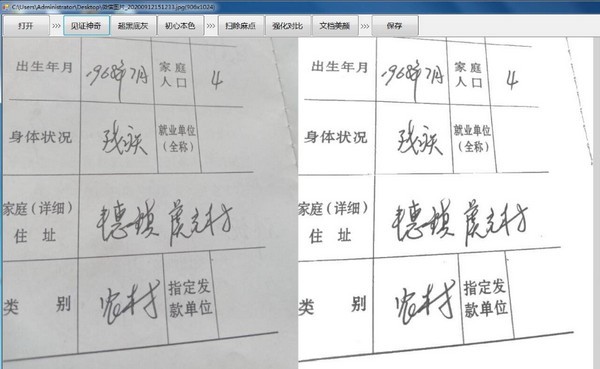 C:\Users\Administrator\Desktop\微信图片_20200912151233.jpg(906x1024)
打开 >>> 见证神奇 超黑底灰 初心本色 >>> 扫除麻点 强化对比 文档美颜 >>> 保存
出生年月 1968年7月 家庭人口 4
身体状况 残疾 就业单位(全称)
家庭(详细)住址
类别 农村 指定发款单位
出生年月 1968年7月 家庭人口 4
身体状况 残疾 就业单位(全称)
家庭(详细)住址
类别 农村 指定发款单位